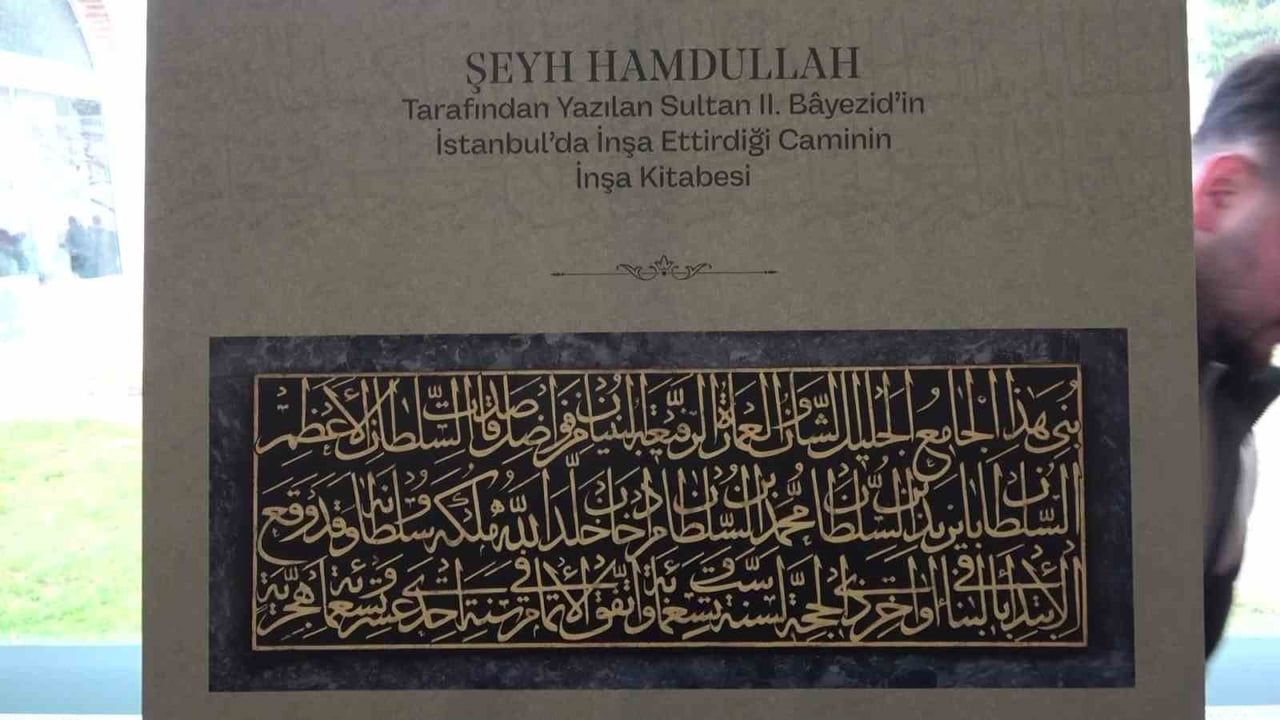 ŞEYH HAMDULLAH
Tarafından Yazılan Sultan II. Bâyezid’in
İstanbul’da İnşa Ettirdiği Caminin
İnşa Kitabesi
بُنِيَ هذا الجامع الجليل الشان والعمارة الرفيعة البنيان من فواضل صدقات السلطان الأعظم
السلطان بايزيد بن السلطان محمد بن السلطان مراد خان خلد الله ملكه وسلطانه وقد وقع
الابتداء بالبناء في أواخر ذي الحجة لسنة ست وتسعمائة واتفق الاتمام في سنة احدى عشرة وتسعمائة هجرية